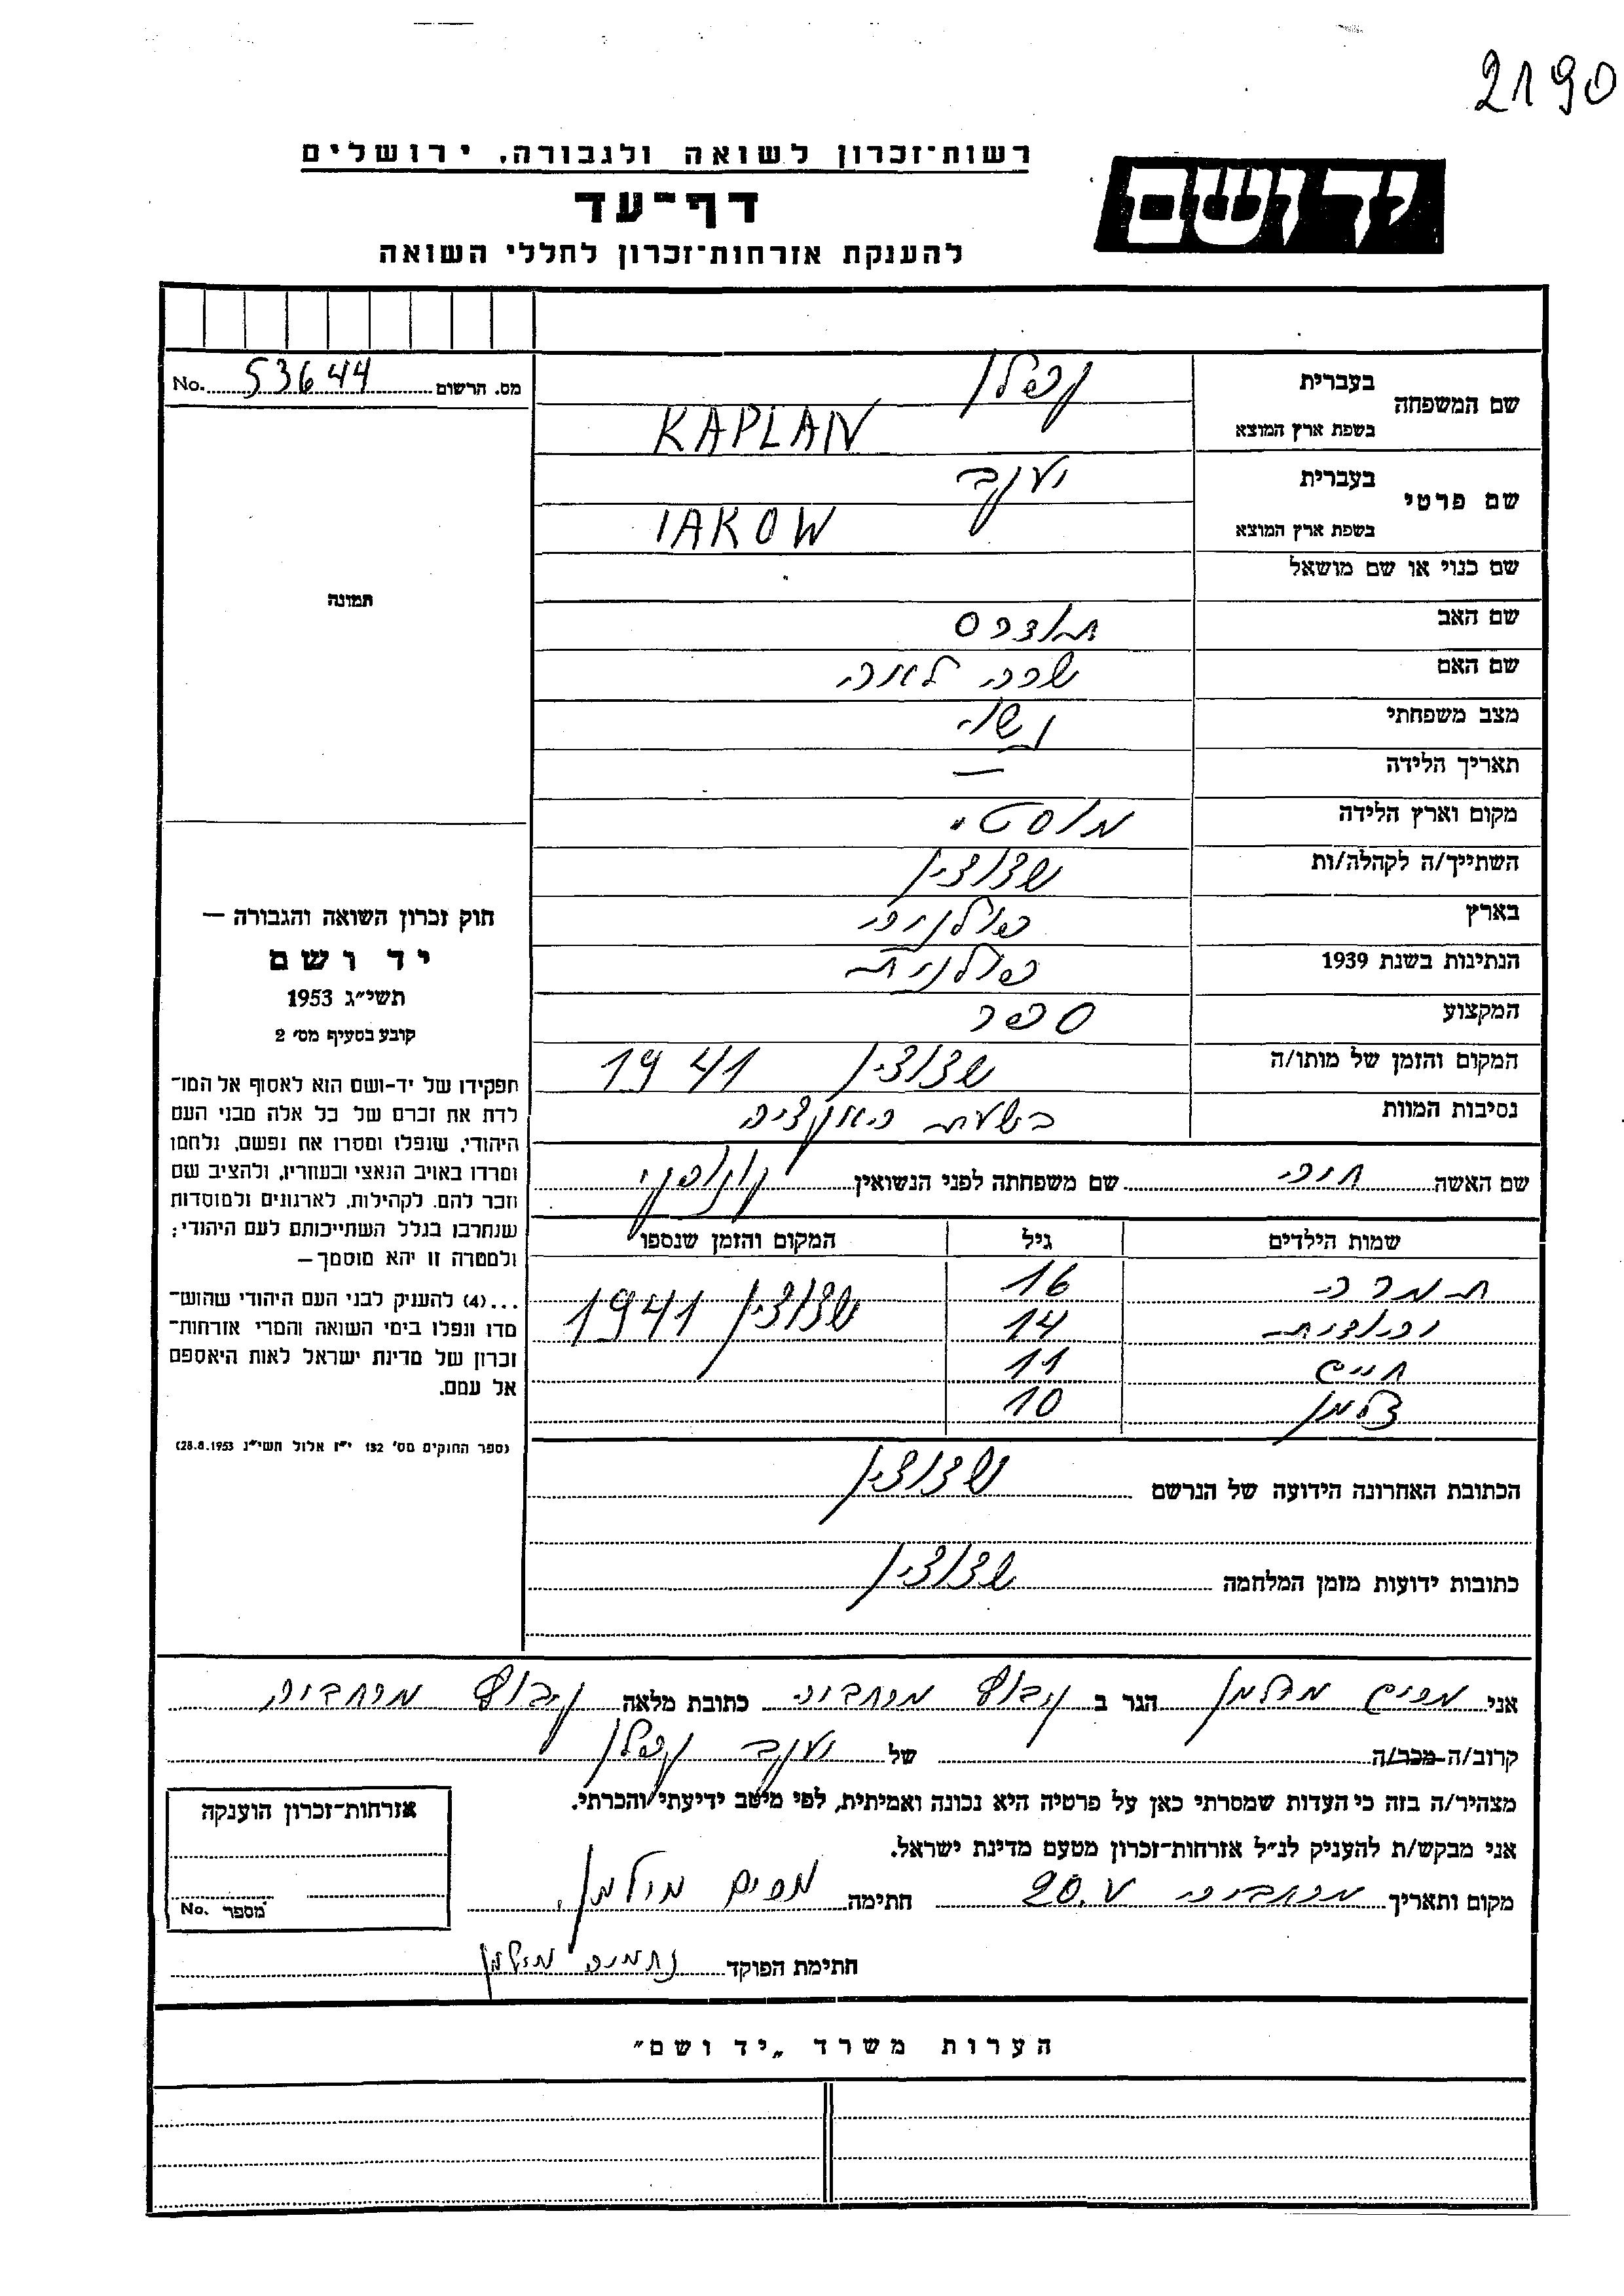 2190
רשות־זכרון לשואה ולגבורה, ירושלים
יד ושם
דף־עד
להענקת אזרחות־זכרון לחללי השואה
מס. הרשום 53644 No.
שם המשפחה בעברית קפלן
בשפת ארץ המוצא KAPLAN
שם פרטי בעברית יעקב
בשפת ארץ המוצא IAKOW
שם כנוי או שם מושאל
תמונה
שם האב
שם האם שרה לאה
מצב משפחתי נשוי
תאריך הלידה —
מקום וארץ הלידה מוסטי
השתייך/ה לקהלה/ות שצוצין
בארץ פולניה
הנתינות בשנת 1939 פולנית
המקצוע ספר
המקום והזמן של מותו/ה שצוצין 1941
נסיבות המוות בשעת האקציה
שם האשה חיה שם משפחתה לפני הנשואין
שמות הילדים גיל המקום והזמן שנספו
תמרה 16 שצוצין 1941
יהודית 14
חיים 11
זלמן 10
הכתובת האחרונה הידועה של הנרשם שצוצין
כתובות ידועות מזמן המלחמה שצוצין
חוק זכרון השואה והגבורה —
יד ושם
תשי״ג 1953
קובע בסעיף מס׳ 2
תפקידו של יד־ושם הוא לאסוף אל המו־
לדת את זכרם של כל אלה מבני העם
היהודי, שנפלו ומסרו את נפשם, נלחמו
ומרדו באויב הנאצי ובעוזריו, ולהציב שם
וזכר להם, לקהילות, לארגונים ולמוסדות
שנחרבו בגלל השתייכותם לעם היהודי;
ולמטרה זו יהא מוסמך —
...(4) להעניק לבני העם היהודי שהוש־
מדו ונפלו בימי השואה והמרי אזרחות־
זכרון של מדינת ישראל לאות היאספם
אל עמם.
(ספר החוקים מס׳ 132 י״ז אלול תשי״ג 28.8.1953)
אני הגר ב קיבוץ מרחביה כתובת מלאה קיבוץ מרחביה
קרוב/ה מכר/ה של יעקב קפלן
מצהיר/ה בזה כי העדות שמסרתי כאן על פרטיה היא נכונה ואמיתית, לפי מיטב ידיעתי והכרתי.
אני מבקש/ת להעניק לנ״ל אזרחות־זכרון מטעם מדינת ישראל.
מקום ותאריך מרחביה 20.V חתימה
חתימת הפוקד
אזרחות־זכרון הוענקה
מספר No.
הערות משרד „יד ושם״